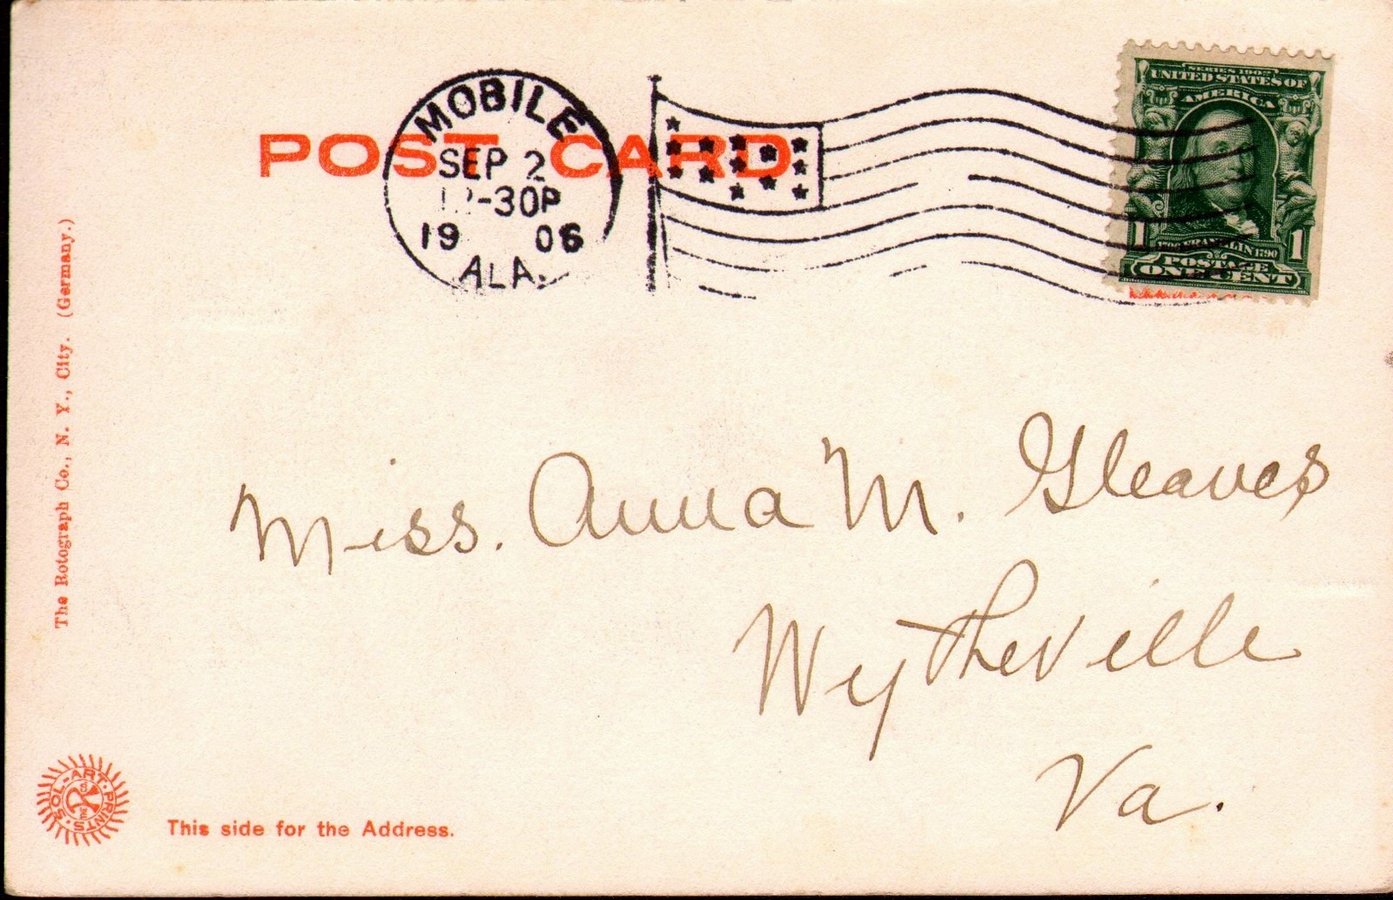 POST CARD
MOBILE
SEP 2
12-30P
1906
ALA.
SERIES 1902
UNITED STATES OF
AMERICA
1 1
1706 FRANKLIN 1790
POSTAGE
ONE CENT
The Rotograph Co., N. Y., City. (Germany.)
Miss. Anna M. Gleaves
Wytheville
Va.
SOL-ART-PRINTS
This side for the Address.